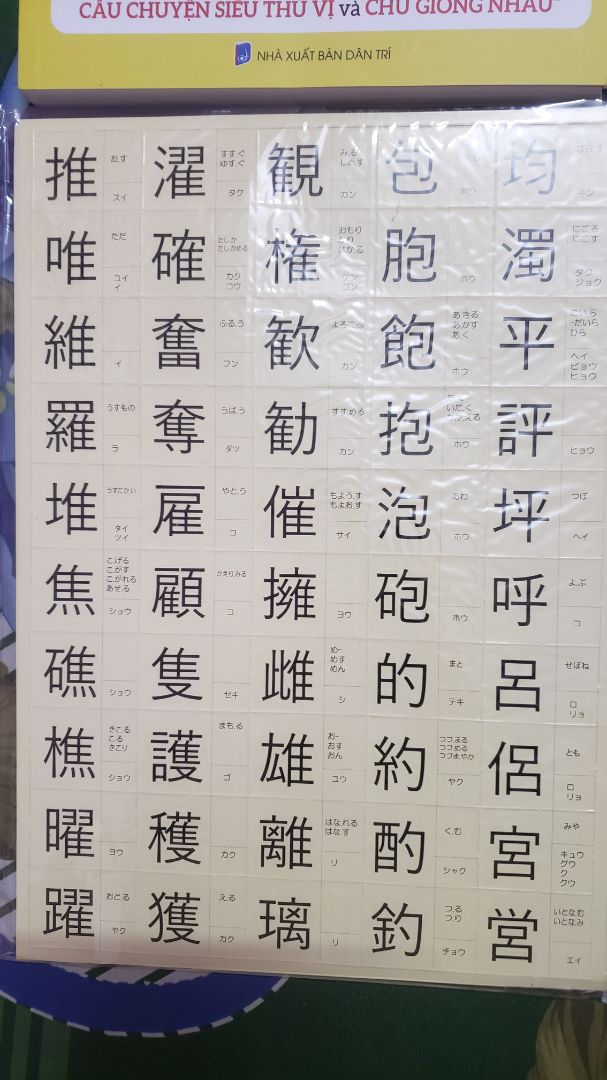 CÂU CHUYỆN SIÊU THÚ VỊ và CHỮ GIỐNG NHAU"
NHÀ XUẤT BẢN DÂN TRÍ
推 お.す スイ
濯 すす.ぐ ゆす.ぐ タク
観 み.る しめ.す カン
包 ホウ
均 なら.す キン
唯 ただ ユイ イ
確 たしか たしかめる カク コウ
権 おもり かり はか.る ケン ゴン
胞 ホウ
濁 にごる にごす ダク ジョク
維 イ
奮 ふる.う フン
歓 カン
飽 あきる あかす あ.く ホウ
平 たいら -だいら ひら ヘイ ビョウ ヒョウ
羅 うすもの ラ
奪 うば.う ダツ
勧 すす.める カン
抱 いだ.く かか.える ホウ
評 ヒョウ
堆 うずたか.い タイ ツイ
雇 やと.う コ
催 もよう.す もよお.す サイ
泡 あわ ホウ
坪 つぼ ヘイ
焦 こ.げる こ.がす こ.がれる あせ.る ショウ
顧 かえりみる コ
擁 ヨウ
砲 ホウ
呼 よ.ぶ コ
礁 ショウ
隻 セキ
雌 め- めす めん シ
的 まと テキ
呂 せぼね ロ リョ
樵 きこ.る こ.る きこり ショウ
護 まも.る ゴ
雄 お- おす おん ユウ
約 つづ.まる つづ.める つづまやか ヤク
侶 とも ロ リョ
曜 ヨウ
穫 カク
離 はな.れる はな.す リ
酌 く.む シャク
宮 みや キュウ グウ ク クウ
躍 おどる ヤク
獲 え.る カク
璃 リ
釣 つ.る つ.り チョウ
営 いとな.む いとな.み エイ